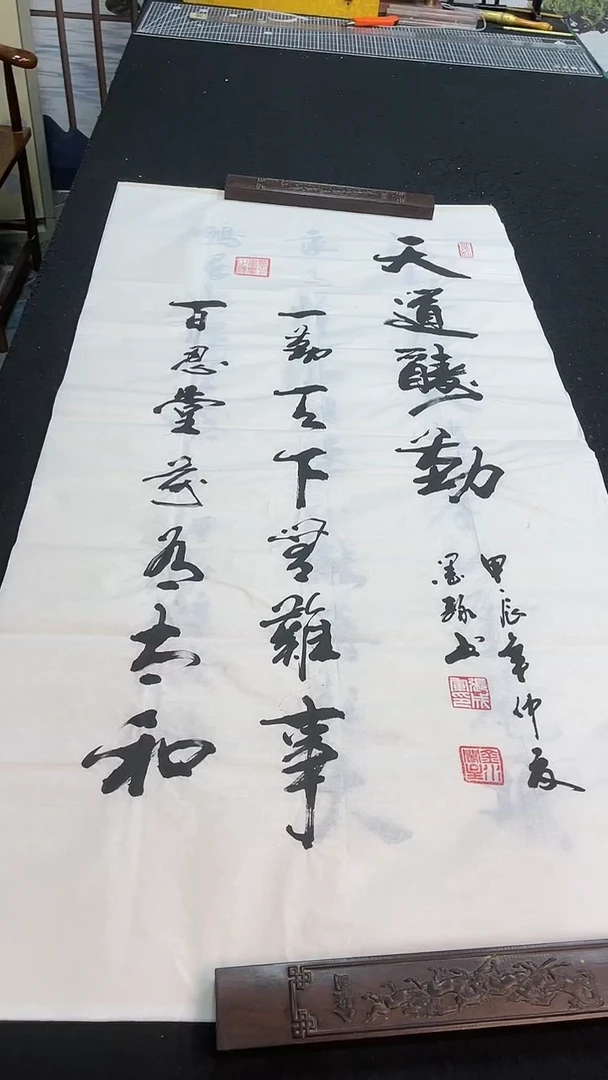 天道酬勤
甲辰年仲夏
墨缘书
一勤天下无难事
百忍堂前有太和